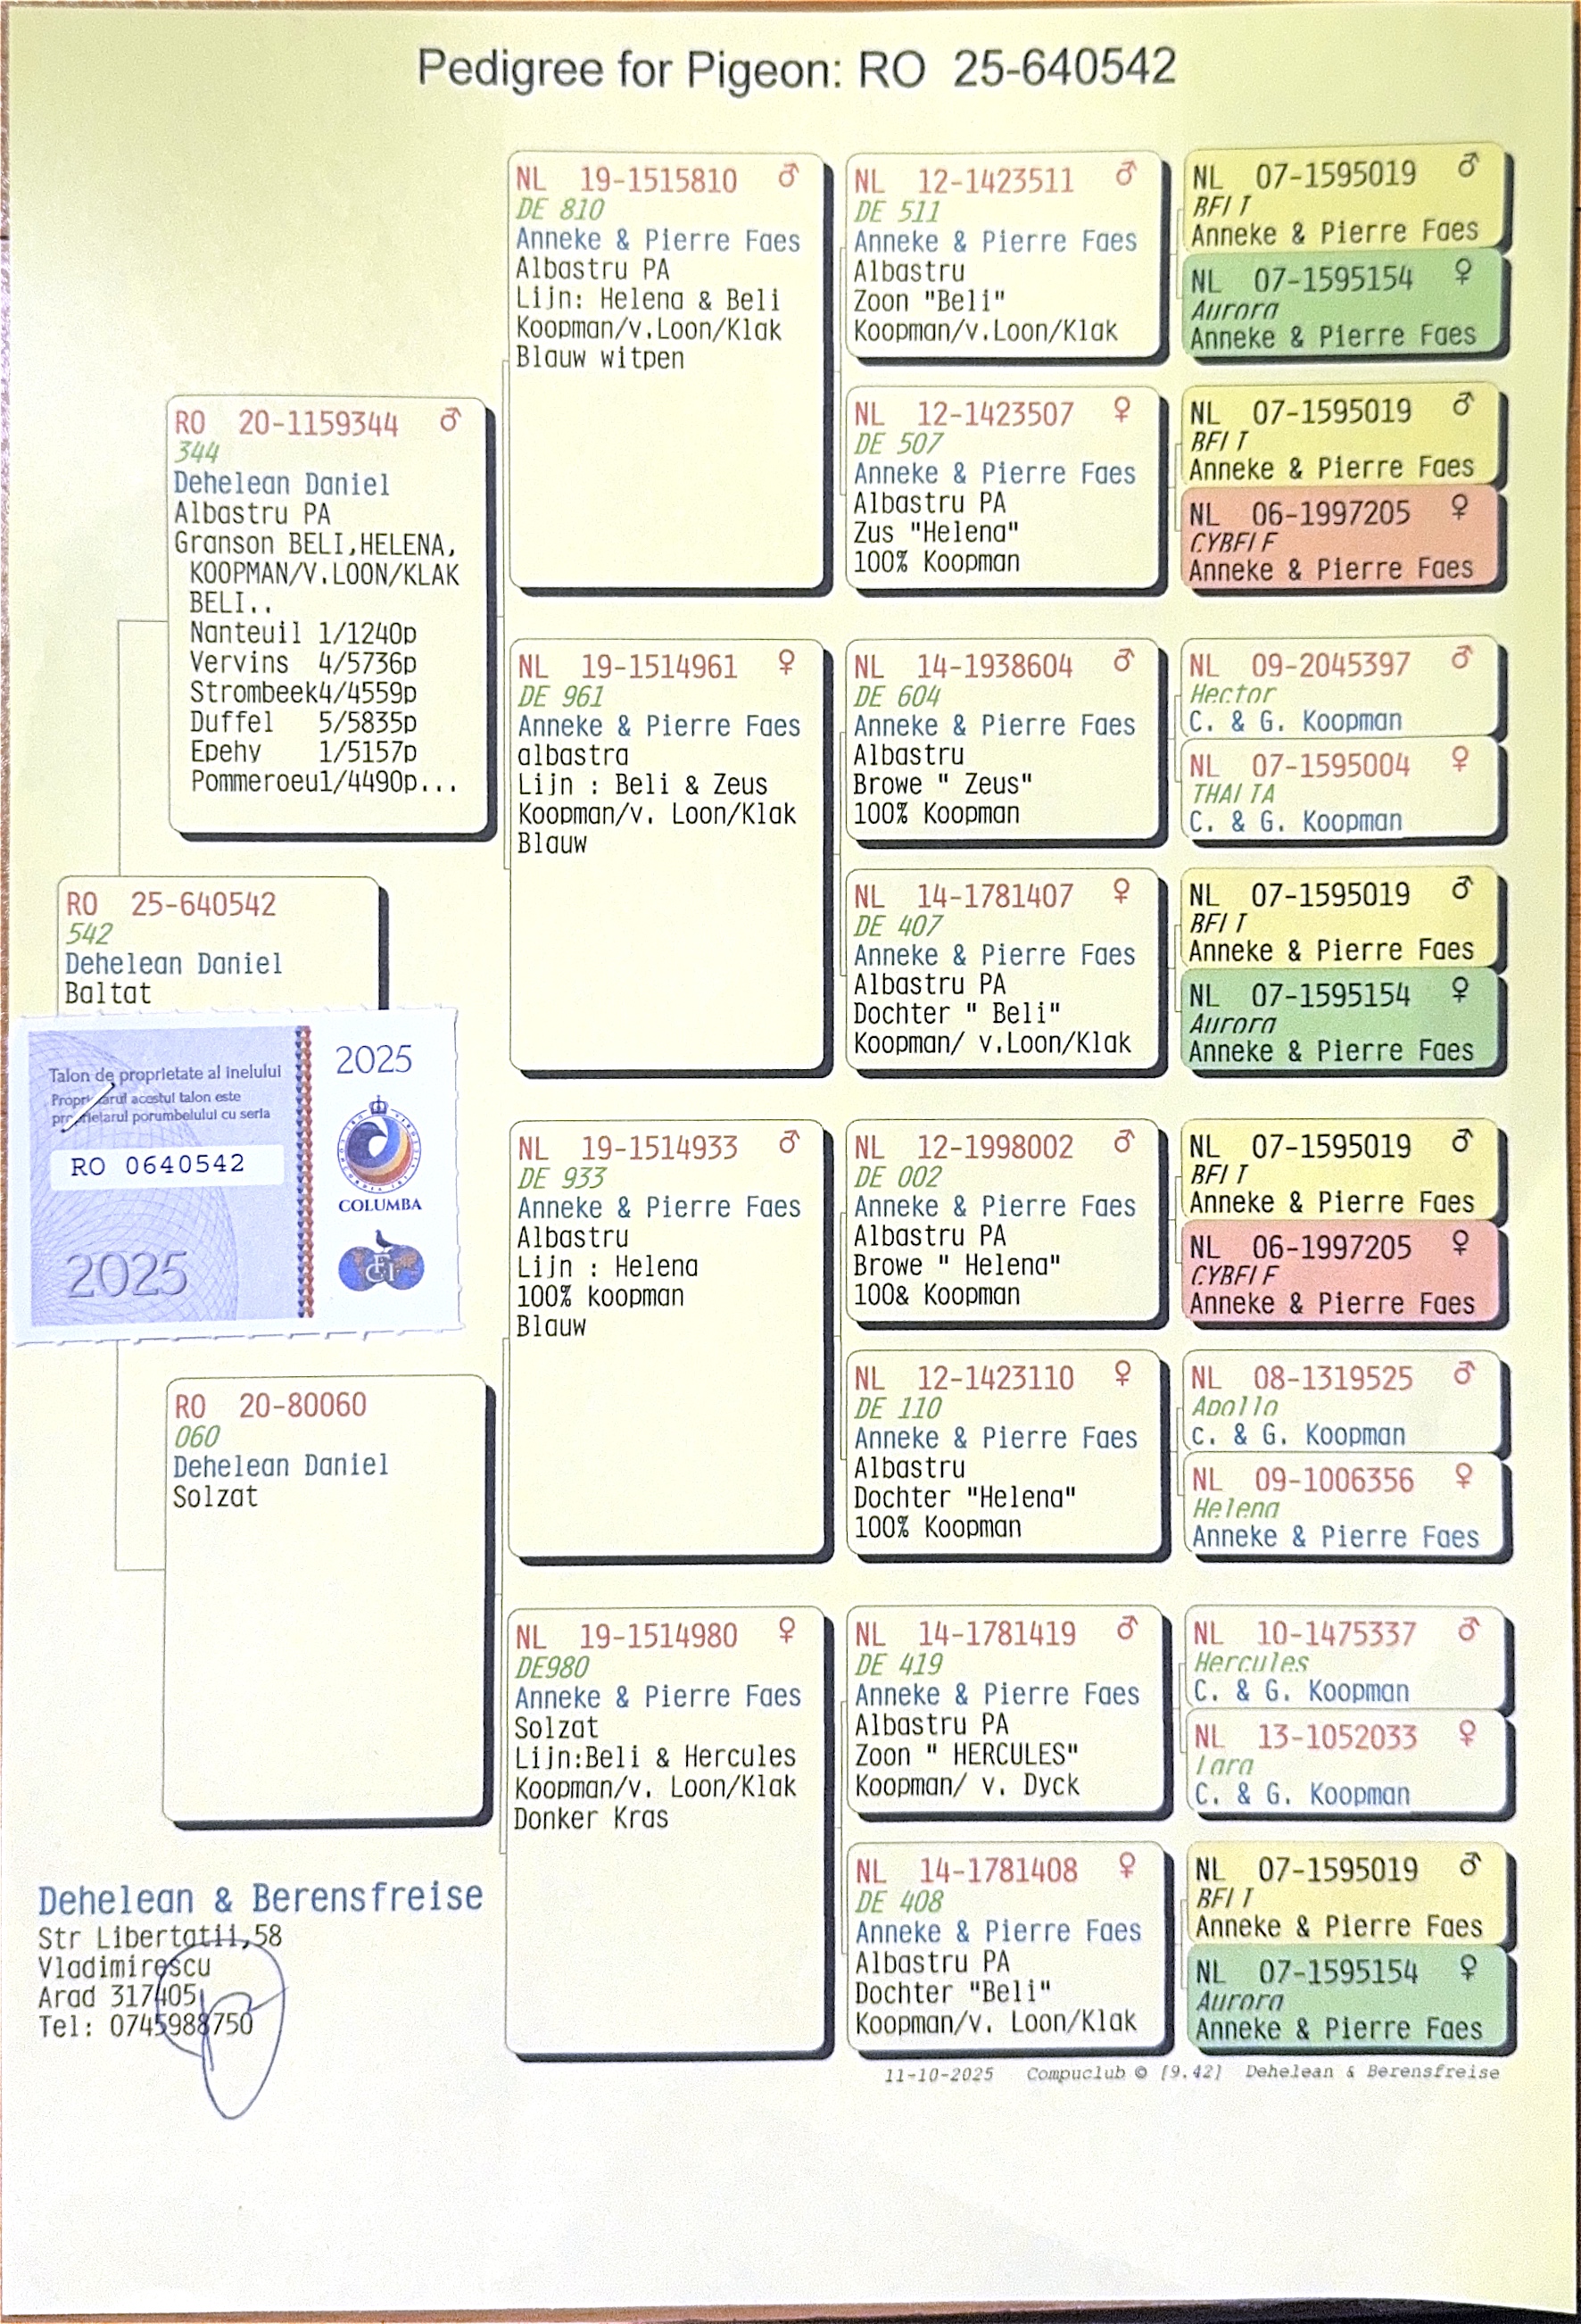 Pedigree for Pigeon: RO 25-640542
RO 25-640542
542
Dehelean Daniel
Baltat
Talon de proprietate al inelului
Proprietarul acestui talon este
proprietarul porumbelului cu seria
RO 0640542
2025
2025
COLUMBA
FCI
RO 20-1159344 ♂
344
Dehelean Daniel
Albastru PA
Granson BELI,HELENA,
KOOPMAN/V.LOON/KLAK
BELI..
Nanteuil 1/1240p
Vervins 4/5736p
Strombeek4/4559p
Duffel 5/5835p
Epehy 1/5157p
Pommeroeu1/4490p...
RO 20-80060
060
Dehelean Daniel
Solzat
NL 19-1515810 ♂
DE 810
Anneke & Pierre Faes
Albastru PA
Lijn: Helena & Beli
Koopman/v.Loon/Klak
Blauw witpen
NL 19-1514961 ♀
DE 961
Anneke & Pierre Faes
albastra
Lijn : Beli & Zeus
Koopman/v. Loon/Klak
Blauw
NL 19-1514933 ♂
DE 933
Anneke & Pierre Faes
Albastru
Lijn : Helena
100% koopman
Blauw
NL 19-1514980 ♀
DE980
Anneke & Pierre Faes
Solzat
Lijn:Beli & Hercules
Koopman/v. Loon/Klak
Donker Kras
NL 12-1423511 ♂
DE 511
Anneke & Pierre Faes
Albastru
Zoon "Beli"
Koopman/v.Loon/Klak
NL 12-1423507 ♀
DE 507
Anneke & Pierre Faes
Albastru PA
Zus "Helena"
100% Koopman
NL 14-1938604 ♂
DE 604
Anneke & Pierre Faes
Albastru
Browe " Zeus"
100% Koopman
NL 14-1781407 ♀
DE 407
Anneke & Pierre Faes
Albastru PA
Dochter " Beli"
Koopman/ v.Loon/Klak
NL 12-1998002 ♂
DE 002
Anneke & Pierre Faes
Albastru PA
Browe " Helena"
100& Koopman
NL 12-1423110 ♀
DE 110
Anneke & Pierre Faes
Albastru
Dochter "Helena"
100% Koopman
NL 14-1781419 ♂
DE 419
Anneke & Pierre Faes
Albastru PA
Zoon " HERCULES"
Koopman/ v. Dyck
NL 14-1781408 ♀
DE 408
Anneke & Pierre Faes
Albastru PA
Dochter "Beli"
Koopman/v. Loon/Klak
NL 07-1595019 ♂
BELI
Anneke & Pierre Faes
NL 07-1595154 ♀
Aurora
Anneke & Pierre Faes
NL 07-1595019 ♂
BELI
Anneke & Pierre Faes
NL 06-1997205 ♀
CYBELE
Anneke & Pierre Faes
NL 09-2045397 ♂
Hector
C. & G. Koopman
NL 07-1595004 ♀
THALIA
C. & G. Koopman
NL 07-1595019 ♂
BELI
Anneke & Pierre Faes
NL 07-1595154 ♀
Aurora
Anneke & Pierre Faes
NL 07-1595019 ♂
BELI
Anneke & Pierre Faes
NL 06-1997205 ♀
CYBELE
Anneke & Pierre Faes
NL 08-1319525 ♂
Apollo
c. & G. Koopman
NL 09-1006356 ♀
Helena
Anneke & Pierre Faes
NL 10-1475337 ♂
Hercules
C. & G. Koopman
NL 13-1052033 ♀
Lara
C. & G. Koopman
NL 07-1595019 ♂
BELI
Anneke & Pierre Faes
NL 07-1595154 ♀
Aurora
Anneke & Pierre Faes
Dehelean & Berensfreise
Str Libertatii,58
Vladimirescu
Arad 317405
Tel: 0745988750
11-10-2025 Compuclub © [9.42] Dehelean & Berensfreise